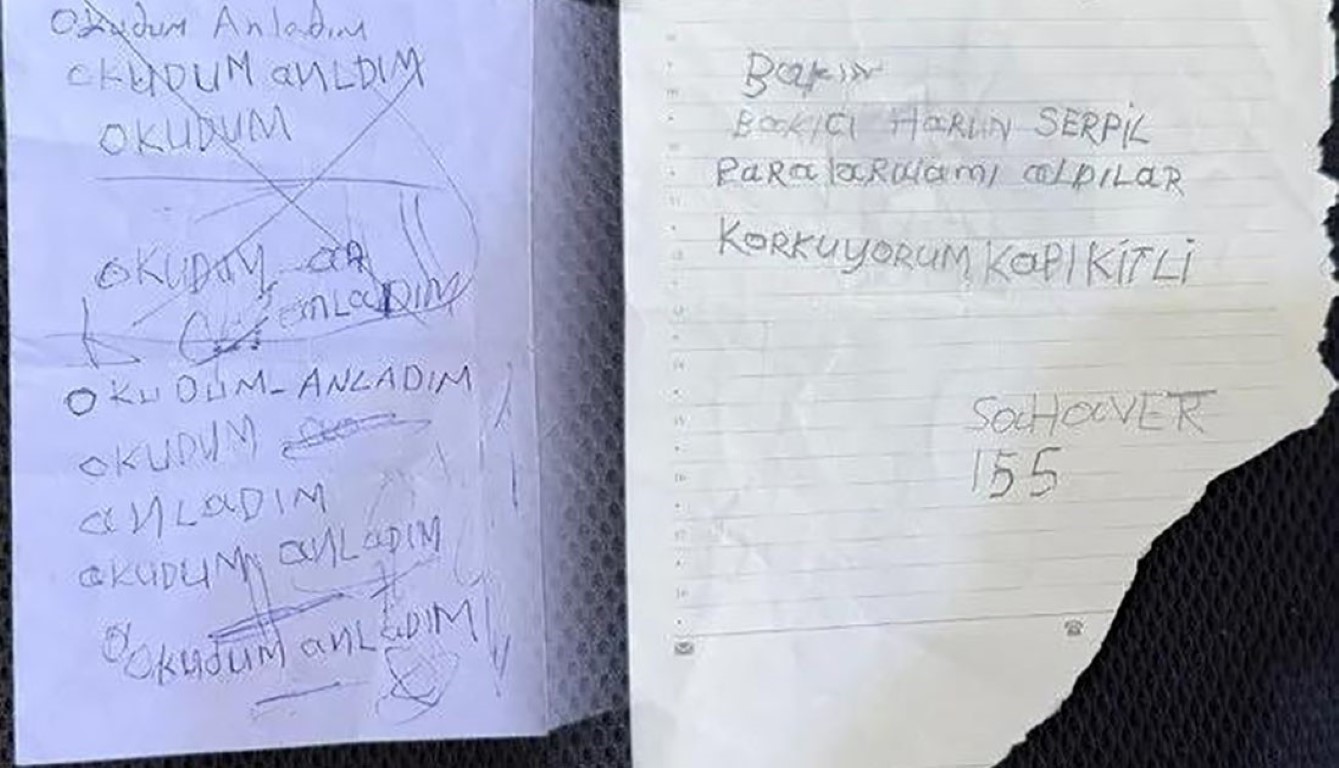 Okudum Anladım
OKUDUM anLDIM
OKUDUM
OKUDUM an
anLaDIM
OKUDUM-ANLADIM
OKUDUM
anLaDIM
OKUDUM anLaDIM
Okudum anLaDIM
BaKICI HaRUN SERPİL
PaRa aLDILaR
KORKUYORUM KaPI KİTLİ
155